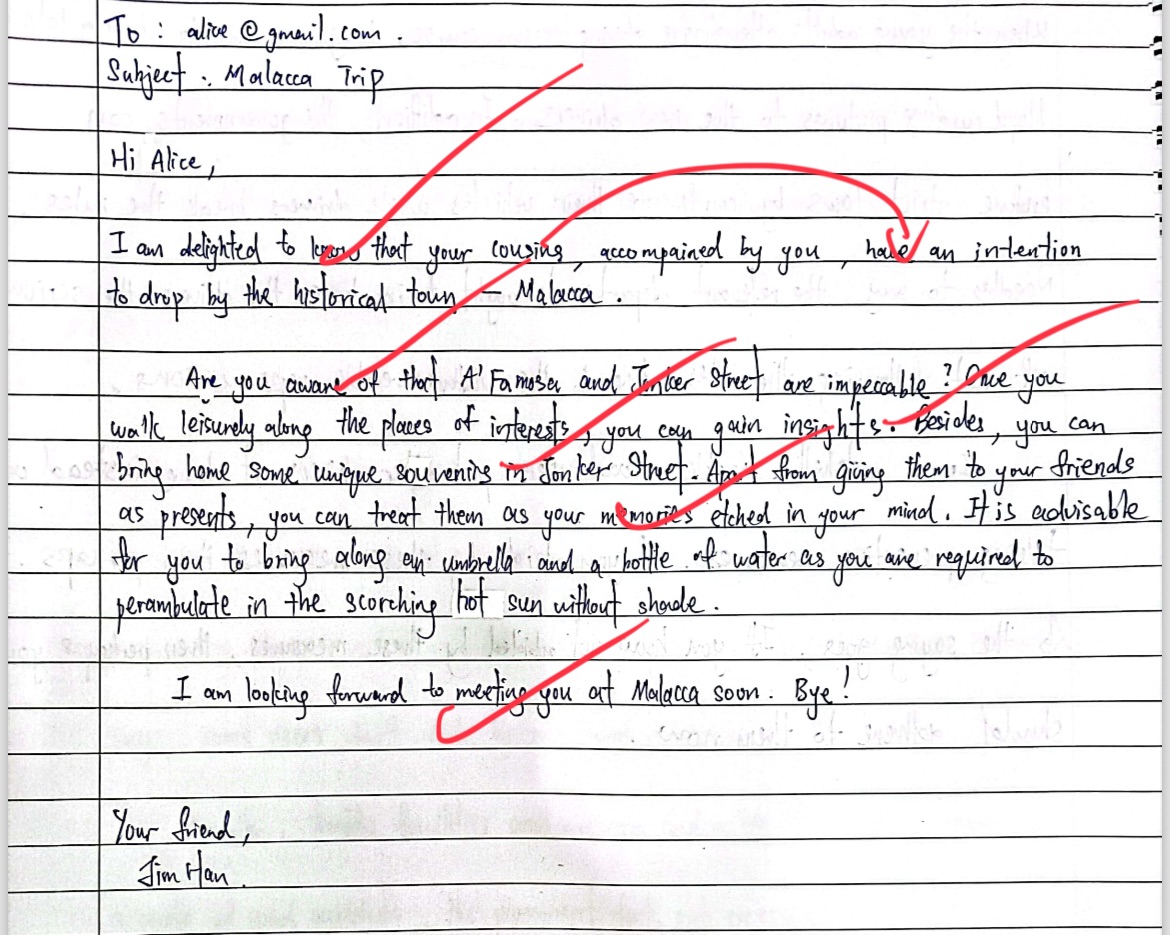 To : alice @gmail.com .
Subject : Malacca Trip
Hi Alice,
I am delighted to know that your cousins, accompained by you, have an intention
to drop by the historical town — Malacca .
Are you aware of that A' Famosa and Jonker Street are impeccable? Once you
walk leisurely along the places of interests, you can gain insights. Besides, you can
bring home some unique souvenirs in Jonker Street. Apart from giving them to your friends
as presents, you can treat them as your memories etched in your mind. It is advisable
for you to bring along an umbrella and a bottle of water as you are required to
perambulate in the scorching hot sun without shade.
I am looking forward to meeting you at Malacca soon. Bye!
Your friend,
Jim Han.